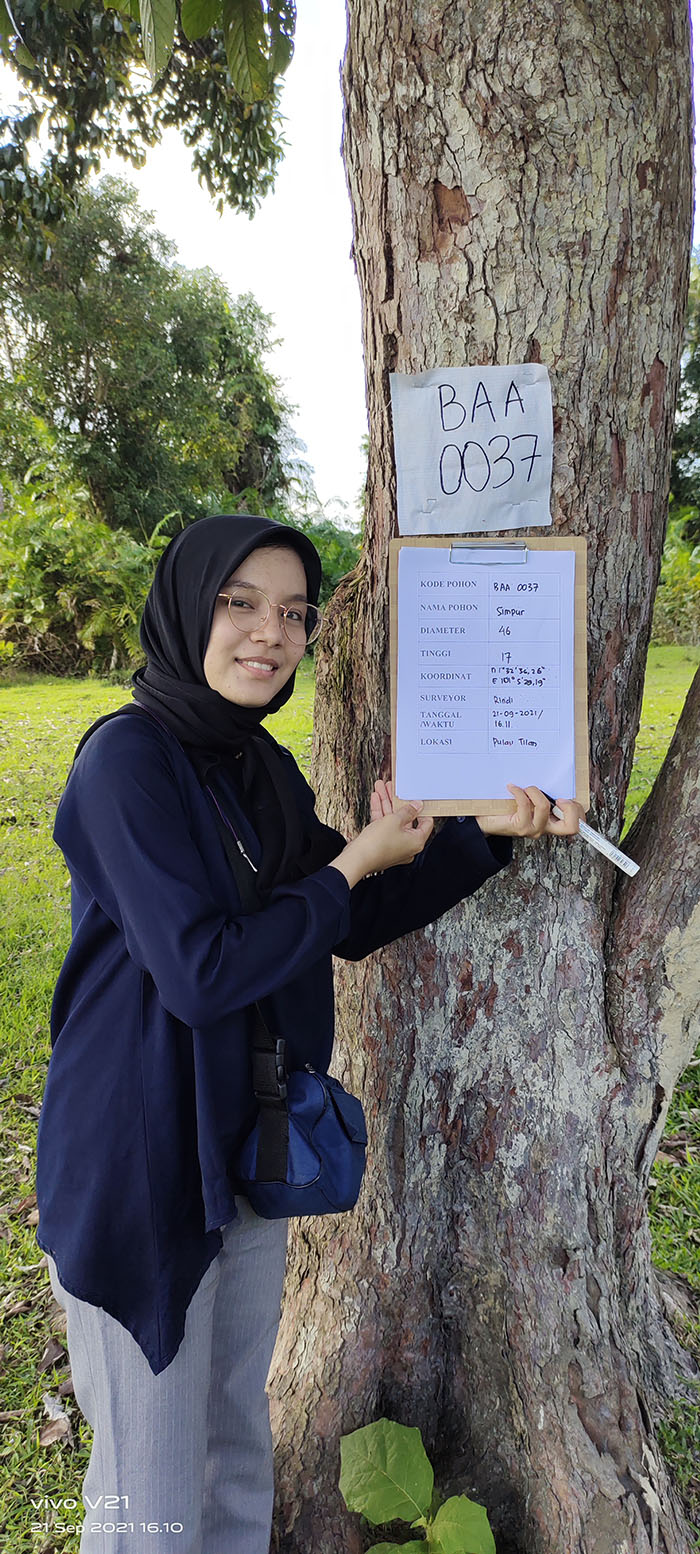 BAA
0037
KODE POHON BAA 0037
NAMA POHON Simpur
DIAMETER 46
TINGGI 17
KOORDINAT N 1°32'36,26"
E 101°5'29,19"
SURVEYOR Rindi
TANGGAL 21-09-2021/
/WAKTU 16.11
LOKASI Pulau Tilan
vivo V21
21 Sep 2021 16.10